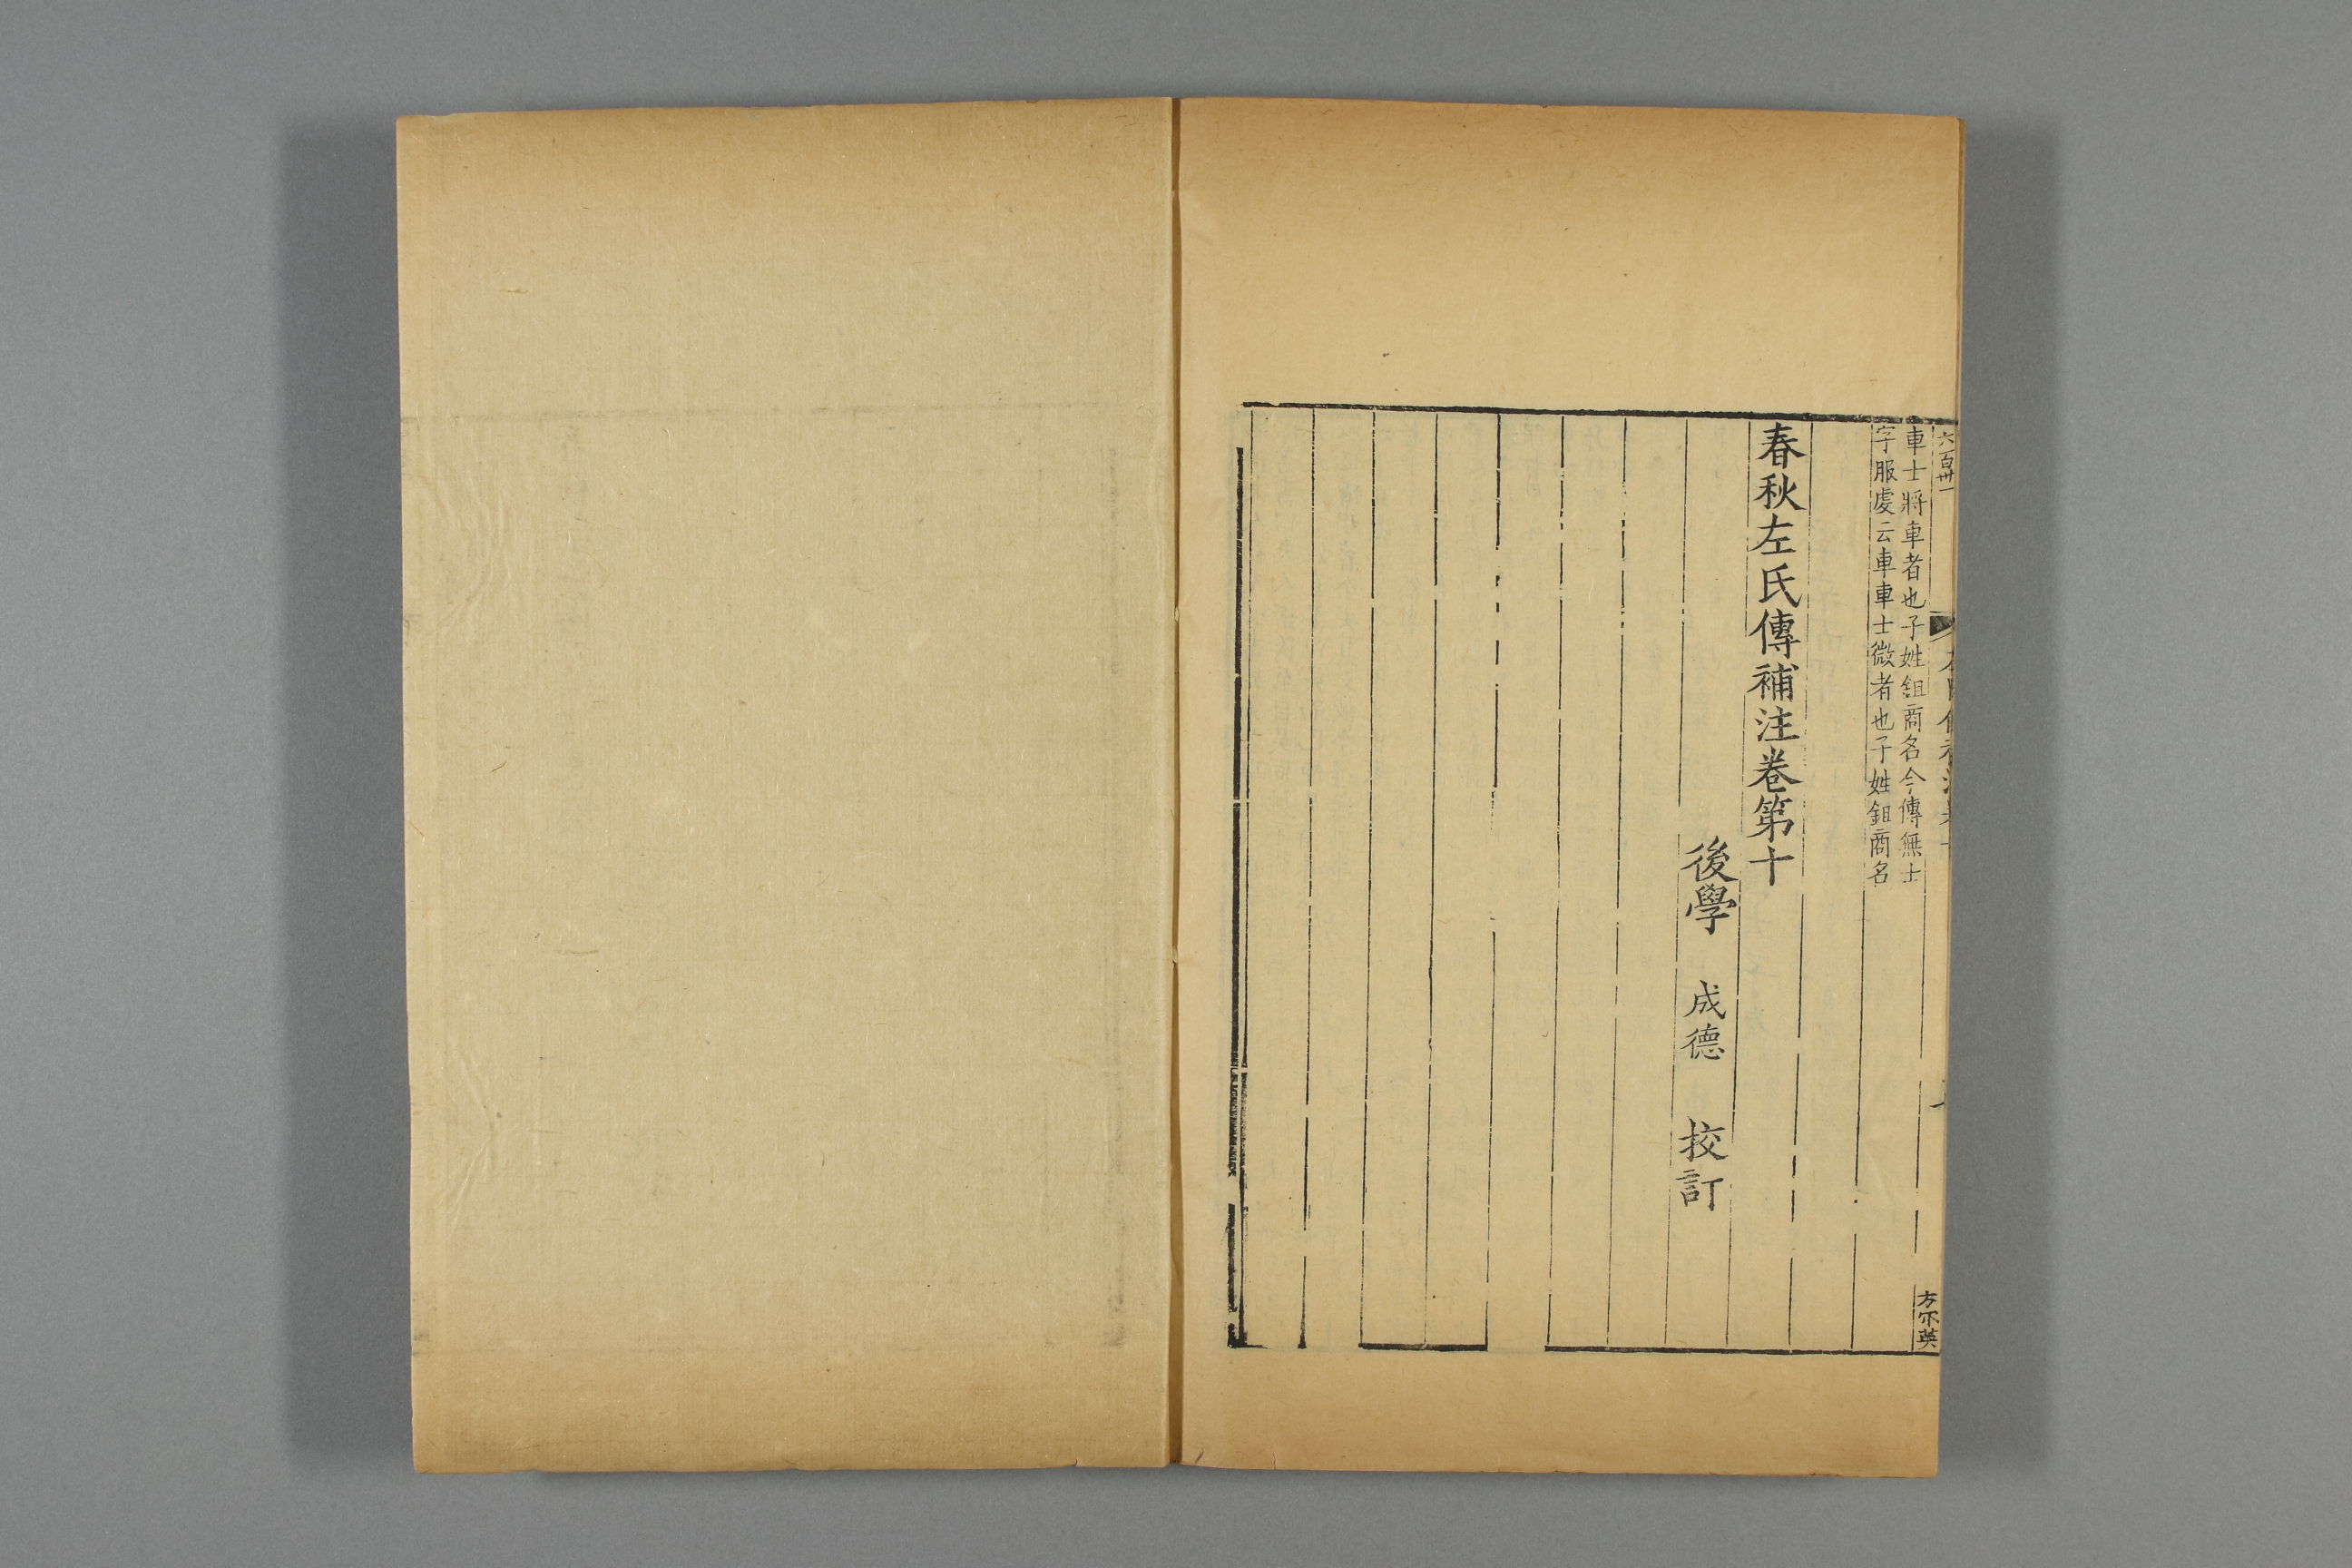 六百卅一
方宗英
車士將車者也子姓鉏商名今傳無士
字服虔云車車士微者也子姓鉏商名
春秋左氏傳補注卷第十
後學 成德 校訂